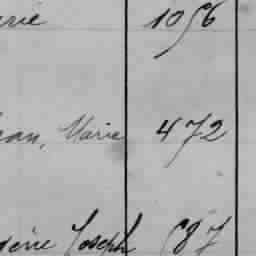 rie 1056
ean, Marie 472
gène Joseph 687